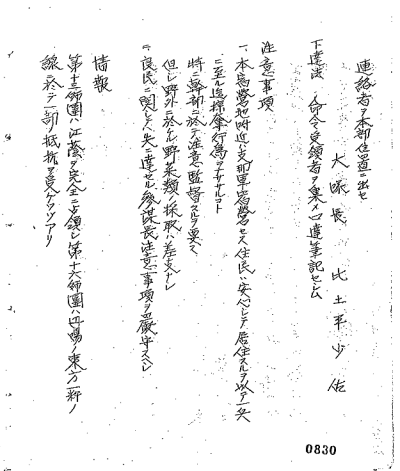 連絡者ヲ本部位置ニ出セ
大隊長 比土平少佐
下達法 命令受領者ヲ集メ口達筆記セシム
注意事項
一、本露營地附近ハ支那軍露營セス住民ハ安心シテ居住スルヲ以テ一兵
ニ至ル迄掠奪行為ヲナサザルコト
特ニ幹部ニ於テ注意監督スルヲ要ス
但シ野外ニ於ケル野菜類ノ採取ハ差支ナシ
二、良民ニ関シテハ先ニ達セル參謀長注意事項ヲ嚴守スヘシ
情報
第十三師團ハ江陰ヲ完全ニ占領シ第十六師團ハ丹陽ノ東方一粁ノ
線ニ於テ一部ノ抵抗ヲ受ケツツアリ
0830